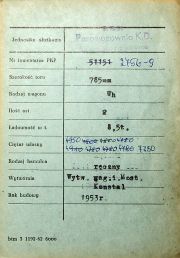 Jednostka służbowa Parowozownia K.D.
Nr inwentarza PKP 51151 2756-S
Szerokość toru 785mm
Rodzaj wagonu Wh
Ilość osi 2
Ładowność w t. 8,5t.
Ciężar własny
Rodzaj hamulca ręczny
Wytwórnia Wytw. Wag.i.Most.
Konstal
Rok budowy 1953r.